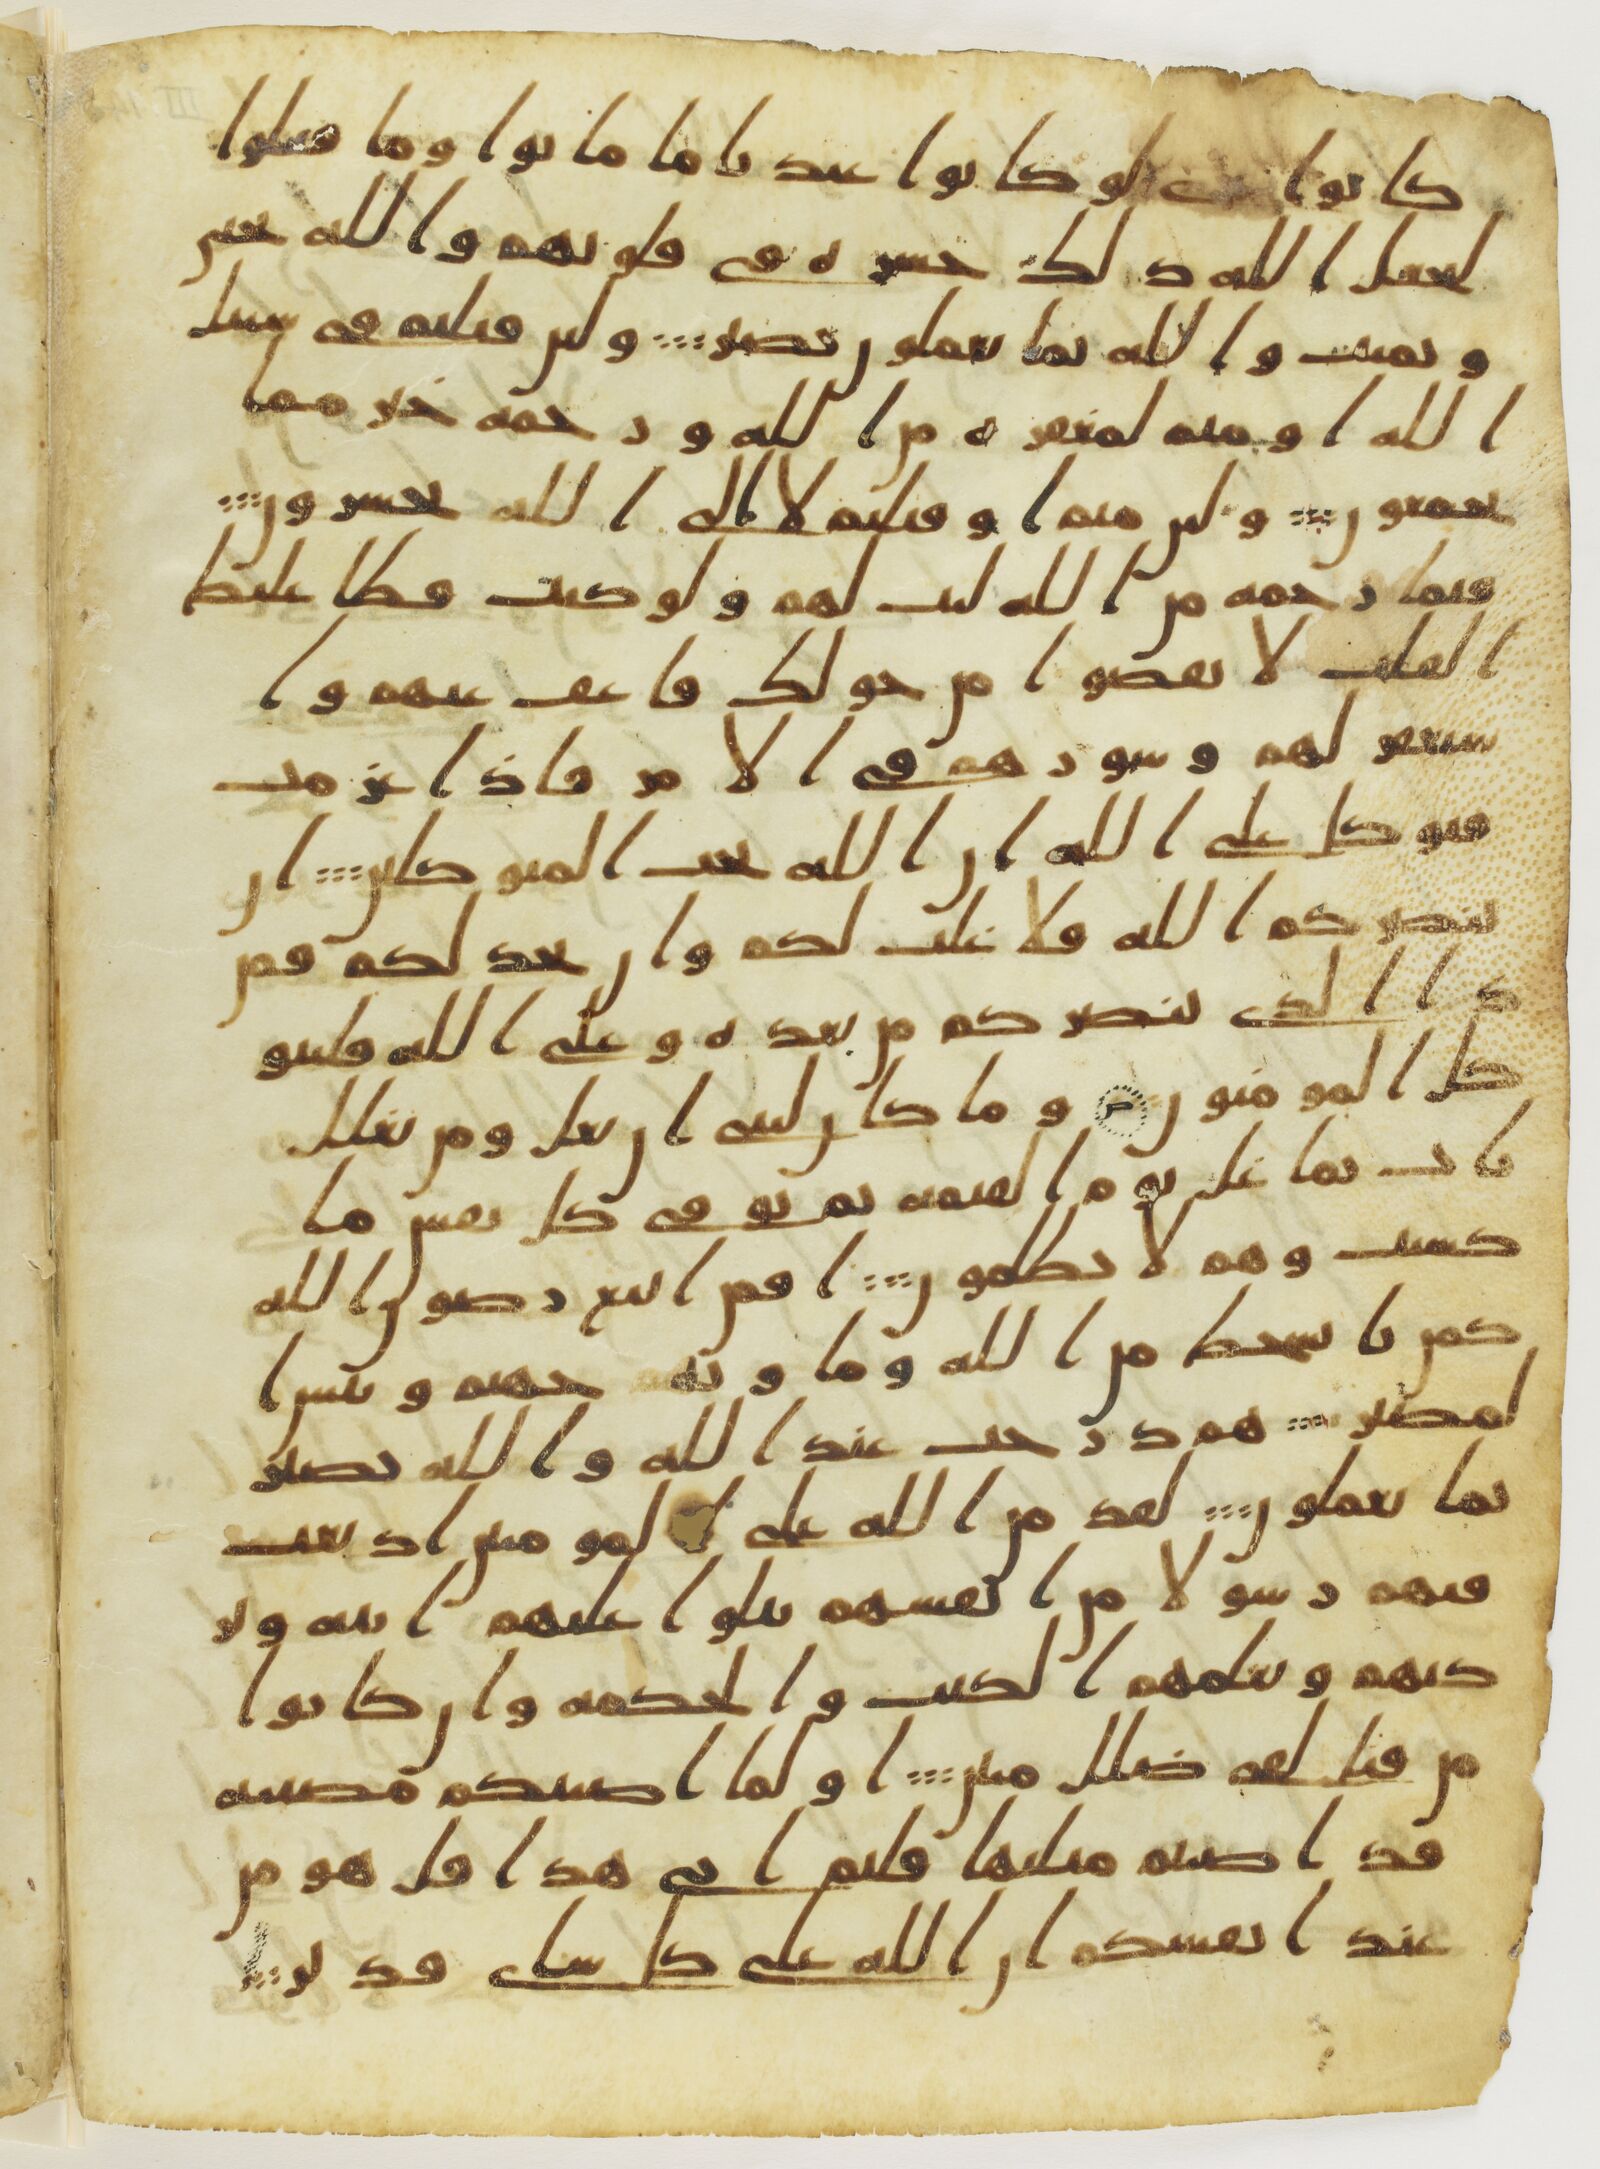 كانوا غزى لو كانوا عندنا ما ماتوا وما قتلوا
ليجعل الله ذلك حسرة في قلوبهم والله يحيي
ويميت والله بما تعملون بصير ولئن قتلتم في سبيل
الله او متم لمغفرة من الله ورحمة خير مما
يجمعون ولئن متم او قتلتم لالى الله تحشرون
فبما رحمة من الله لنت لهم ولو كنت فظا غليظ
القلب لانفضوا من حولك فاعف عنهم وا
ستغفر لهم وشورهم في الامر فاذا عزمت
فتوكل على الله ان الله يحب المتوكلين ان
ينصركم الله فلا غلب لكم وان يخذلكم فمن
ذا الذي ينصركم من بعده وعلى الله فليتو
كل المومنون وما كان لنبي ان يغل ومن يغلل
يات بما غل يوم القيمة ثم توفى كل نفس ما
كسبت وهم لا يظلمون افمن اتبع رضون الله
كمن با بسخط من الله وماويه جهنم وبئس ا
لمصير هم درجت عند الله والله بصير
بما يعملون لقد من الله على المومنين اذ بعث
فيهم رسولا من انفسهم يتلوا عليهم ايته ويز
كيهم ويعلمهم الكتب والحكمة وان كانوا
من قبل لفي ضلل مبين اولما اصبتكم مصيبة
قد اصبتم مثليها قلتم انى هذا قل هو من
عند انفسكم ان الله على كل شاي قدير